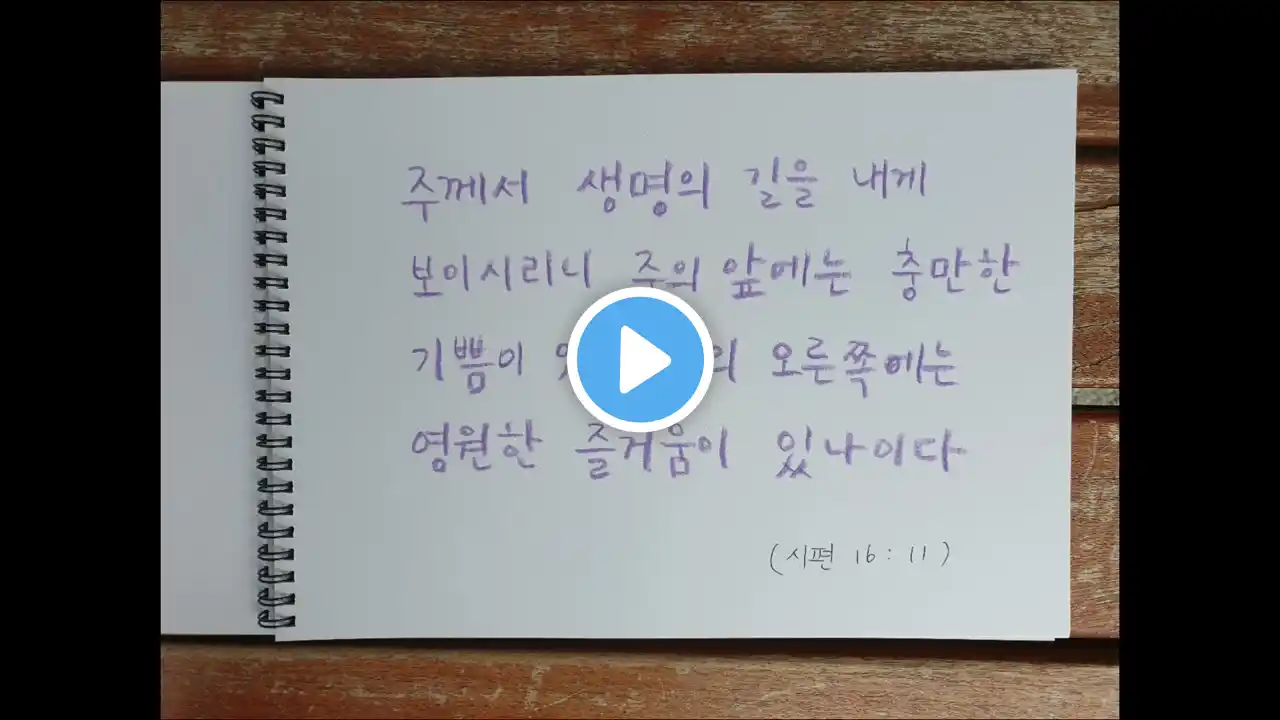 주께서 생명의 길을 내게
보이시리니 주의 앞에는 충만한
기쁨이 오른쪽에는
영원한 즐거움이 있나이다
(시편 16:11)